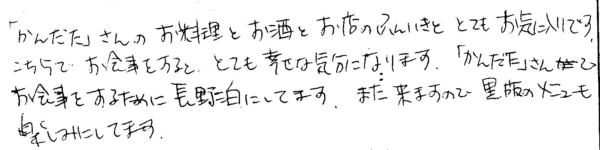 「かんだた」さんの お料理と お酒と お店のふんいきと とても お気に入りです
こちらで お食事をすると、とても 幸せな気分になります。「かんだた」さんで
お食事をするために 長野泊にしてます。また 来ますので 黒板のメニューも
楽しみにしてます。